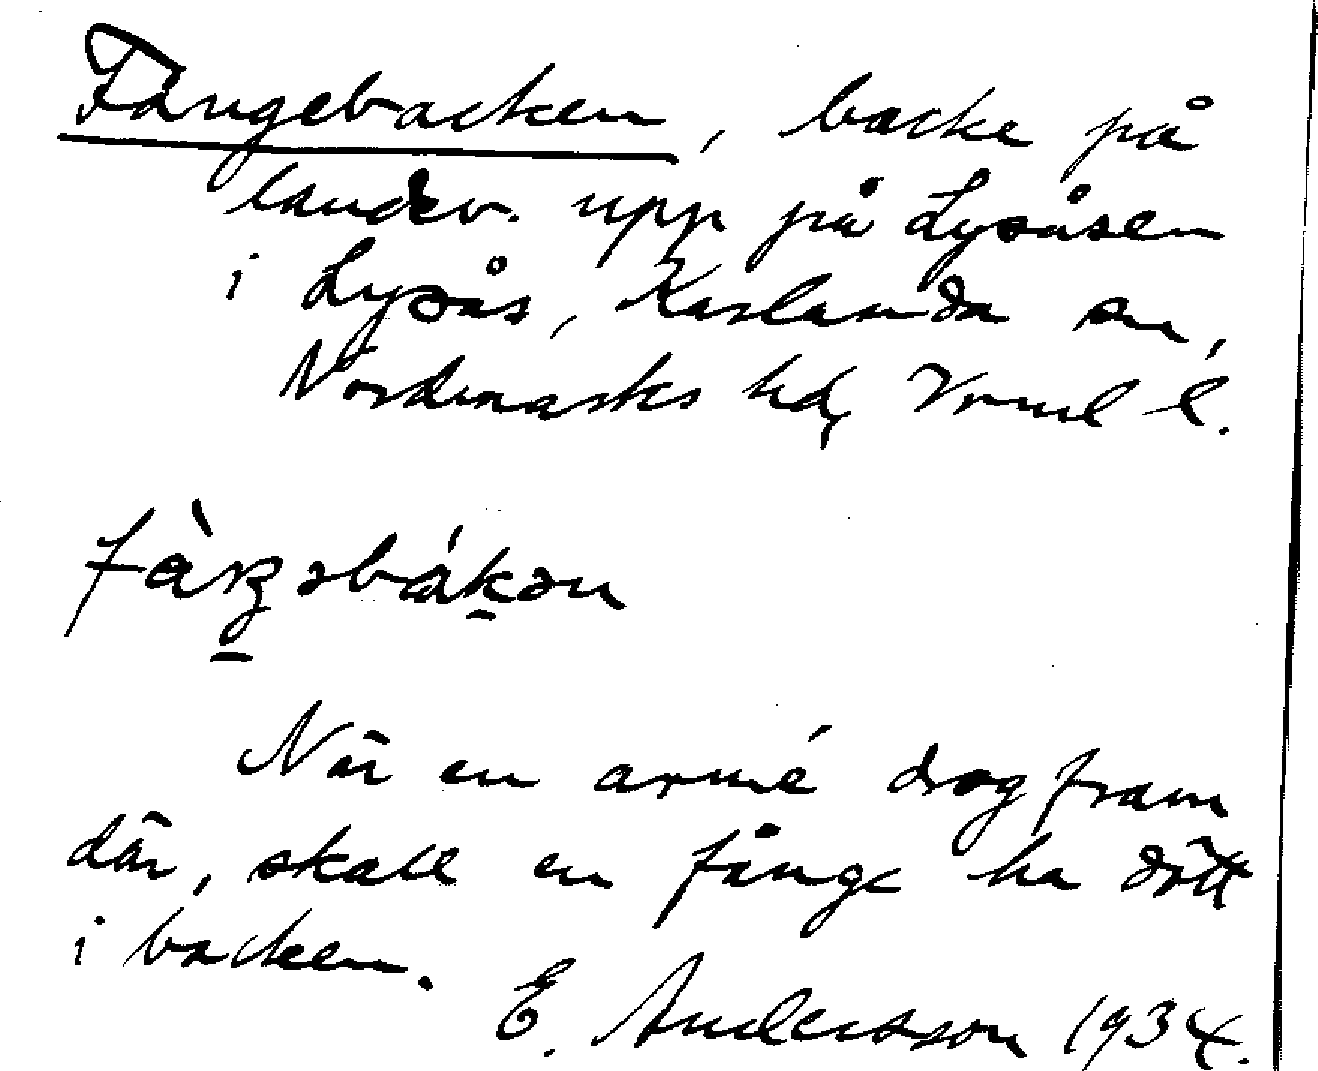 Fångebacken, backe på
landsv. upp på Lysåsen
i Lysås, Karlanda sn,
Nordmarks hd, Vrml l.
När en armé drog fram
där, skall en fånge ha dött
i backen.
E. Andersson 1934.